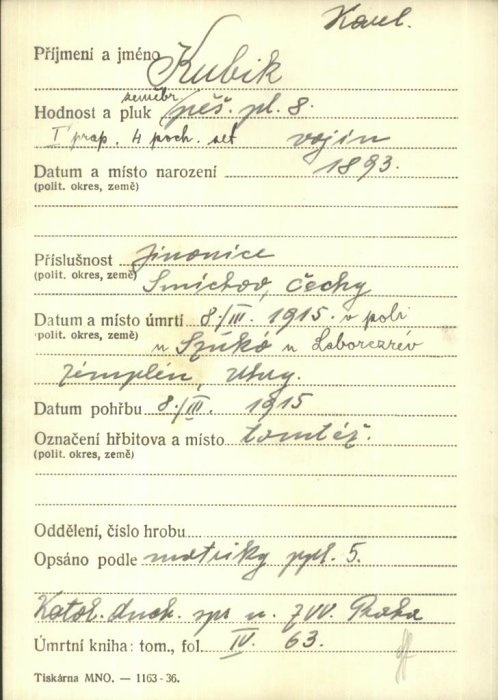 Karel.
Příjmení a jméno Kubik
Hodnost a pluk zeměbr. pěš. pl. 8.
I prap. 4 poch. set vojin
Datum a místo narození 1893.
(polit. okres, země)
Příslušnost Jinonice
(polit. okres, země) Smichov, Čechy
Datum a místo úmrtí 8/III. 1915 v poli
(polit. okres, země) u Szúkó u Laborczrév
Zémplén, Uhry.
Datum pohřbu 8./III. 1915
Označení hřbitova a místo tamtéž.
(polit. okres, země)
Oddělení, číslo hrobu
Opsáno podle matriky ppl. 5.
Katol. duch. spr. u ZVV. Praha
Úmrtní kniha: tom., fol. IV. 63.
Tiskárna MNO. — 1163-36.